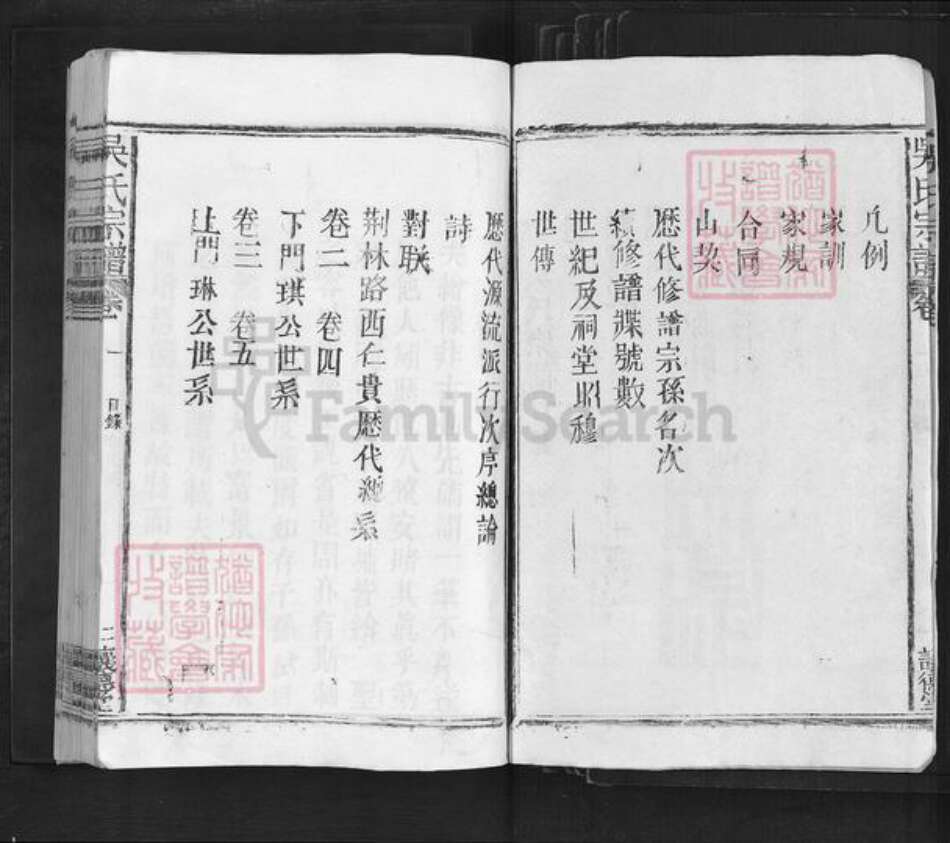 吳氏宗譜卷
凡例
家訓
家規
合同
山契
歷代修譜宗孫名次
續修譜牒號數
世紀及祠堂昭穆
世傳
歷代源流派行次序總論
詩
對联
荆林路西仁貴歷代總系
卷二 卷四
下門琪公世系
卷三 卷五
上門琳公世系
吳氏宗譜卷一 目錄
譜學會
收藏
譜學會
收藏
FamilySearch